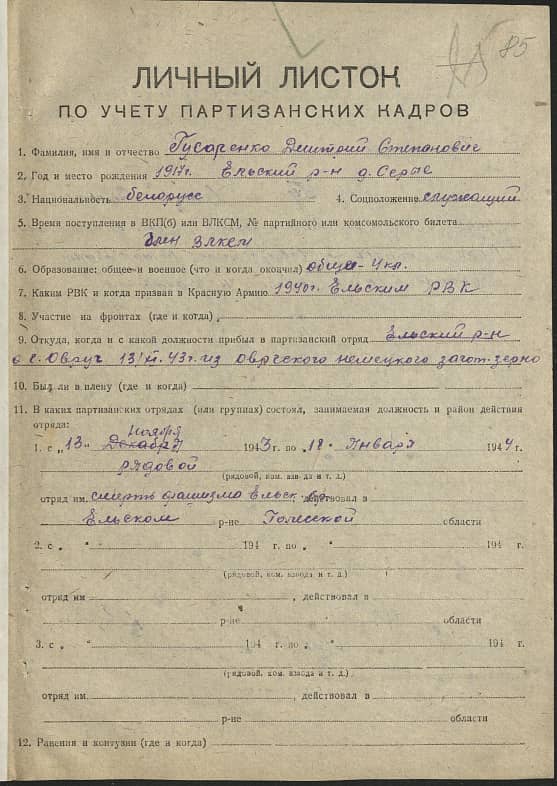 85
ЛИЧНЫЙ ЛИСТОК
ПО УЧЕТУ ПАРТИЗАНСКИХ КАДРОВ
1. Фамилия, имя и отчество Гусаренко Дмитрий Степанович
2. Год и место рождения 1917г. Ельский р-н д.
3. Национальность белорусс 4. Соцположение служащий
5. Время поступления в ВКП(б) или ВЛКСМ, № партийного или комсомольского билета
член ВЛКСМ
6. Образование: общее и военное (что и когда окончил) общее-4кл.
7. Каким РВК и когда призван в Красную Армию 1940г. Ельским РВК
8. Участие на фронтах (где и когда)
9. Откуда, когда и с какой должности прибыл в партизанский отряд Ельский р-н
с. Овруч 13/ 43г. из немецкого загот. зерно
10. Был ли в плену (где и когда)
11. В каких партизанских отрядах (или группах) состоял, занимаемая должность и район действия
отряда:
ноября
1. с „13„ Декабря 1943г. по „18„ Января 1944г.
рядовой
(рядовой, ком. взвода и т. д.)
отряд им. смерть фашизма Ельск бр. действовал в
Ельском р-не Полесской области
2. с „ “ 194 г. по „ “ 194 г.
(рядовой, ком. взвода и т. д.)
отряд им , действовал в
р-не области
3. с „ “ 194 г. по „ “ 194 г.
(рядовой, ком. взвода и т. д.)
отряд им. , действовал в
р-не области
12. Ранения и контузии (где и когда)